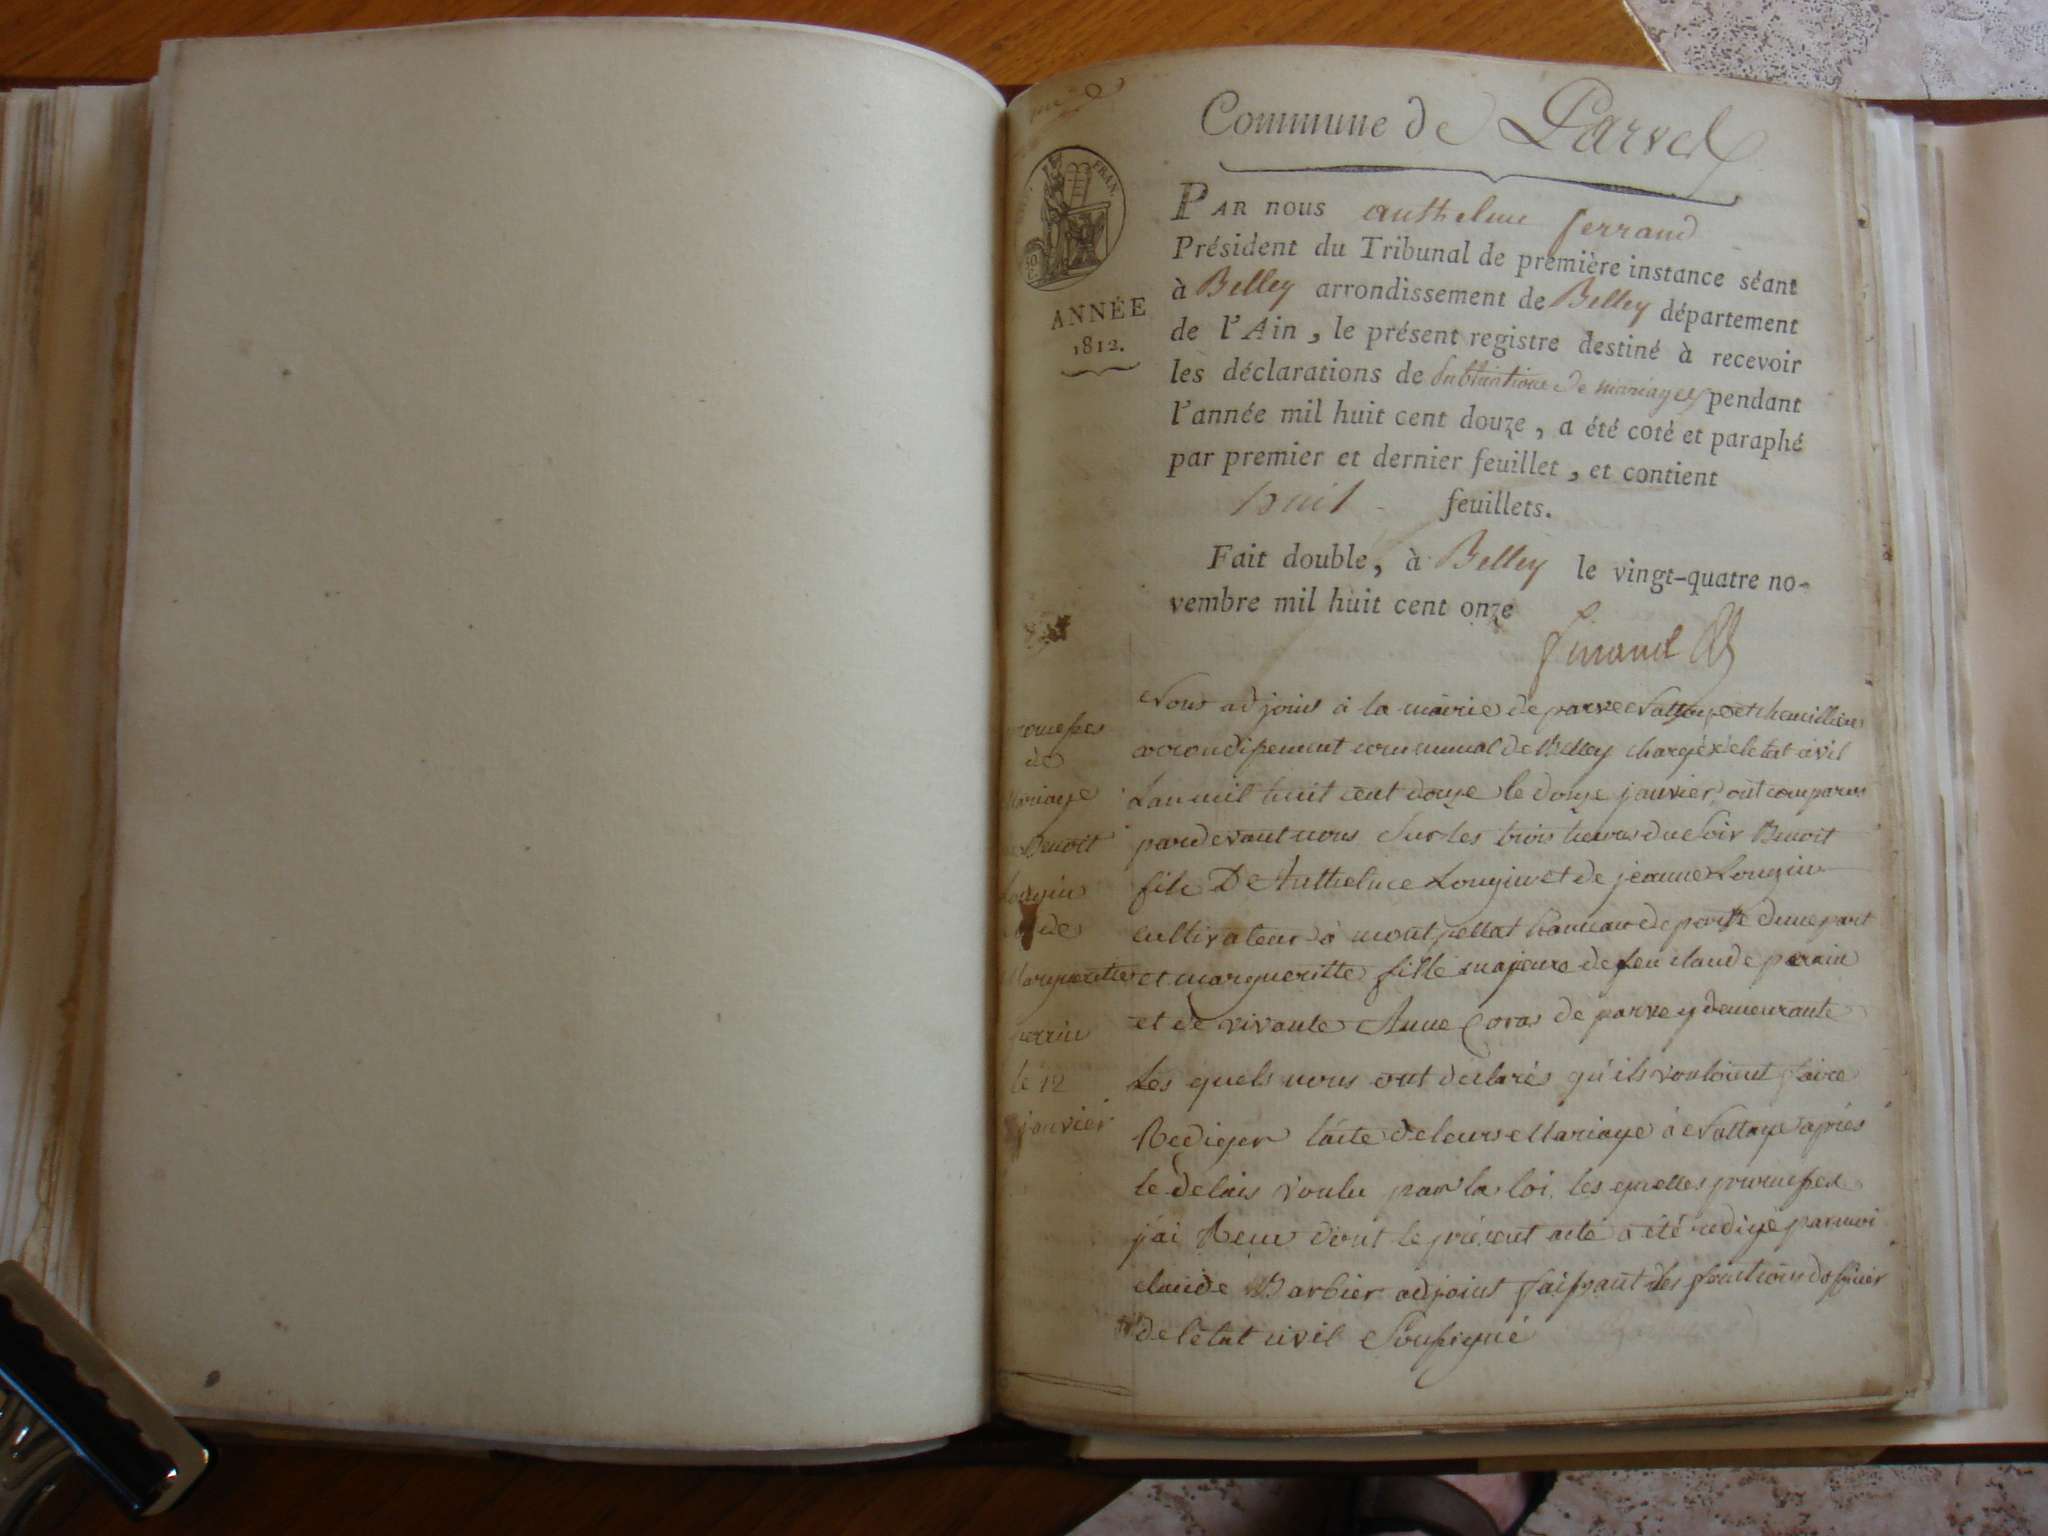 Commune de Parves
FRAN.
ANNÉE
1812.
PAR nous anthelme ferrand
Président du Tribunal de première instance séant
à Belley arrondissement de Belley département
de l'Ain, le présent registre destiné à recevoir
les déclarations de publications de mariages pendant
l'année mil huit cent douze, a été coté et paraphé
par premier et dernier feuillet, et contient
huit feuillets.
Fait double, à Belley le vingt-quatre no-
vembre mil huit cent onze
ferrand
promesses
de
Mariage
Benoit
Longin
de
Margueritte
perrin
le 12
janvier
Nous adjoint à la mairie de parve Nattage et
arrondissement communal de Belley chargé de letat civil
Lan mil huit cent douze le douze janvier ont comparus
pardevant nous sur les trois heures du soir Benoit
fils De Anthelme Longin et de jeanne Longin
cultivateur à montpellat hameau de parve dune part
et margueritte fille majeure de feu claude perrin
et de vivante Anne Coras de parve y demeurante
Les quels nous ont declarés qu'ils vouloient faire
Rediger lacte de leurs Mariage à Nattage après
le delais voulu par la loi, les quelles promesses
j'ai Recu dont le présent acte a été redigé par moi
claude Barbier adjoint faissant les fonctions dofficier
de létat civil Soussigné